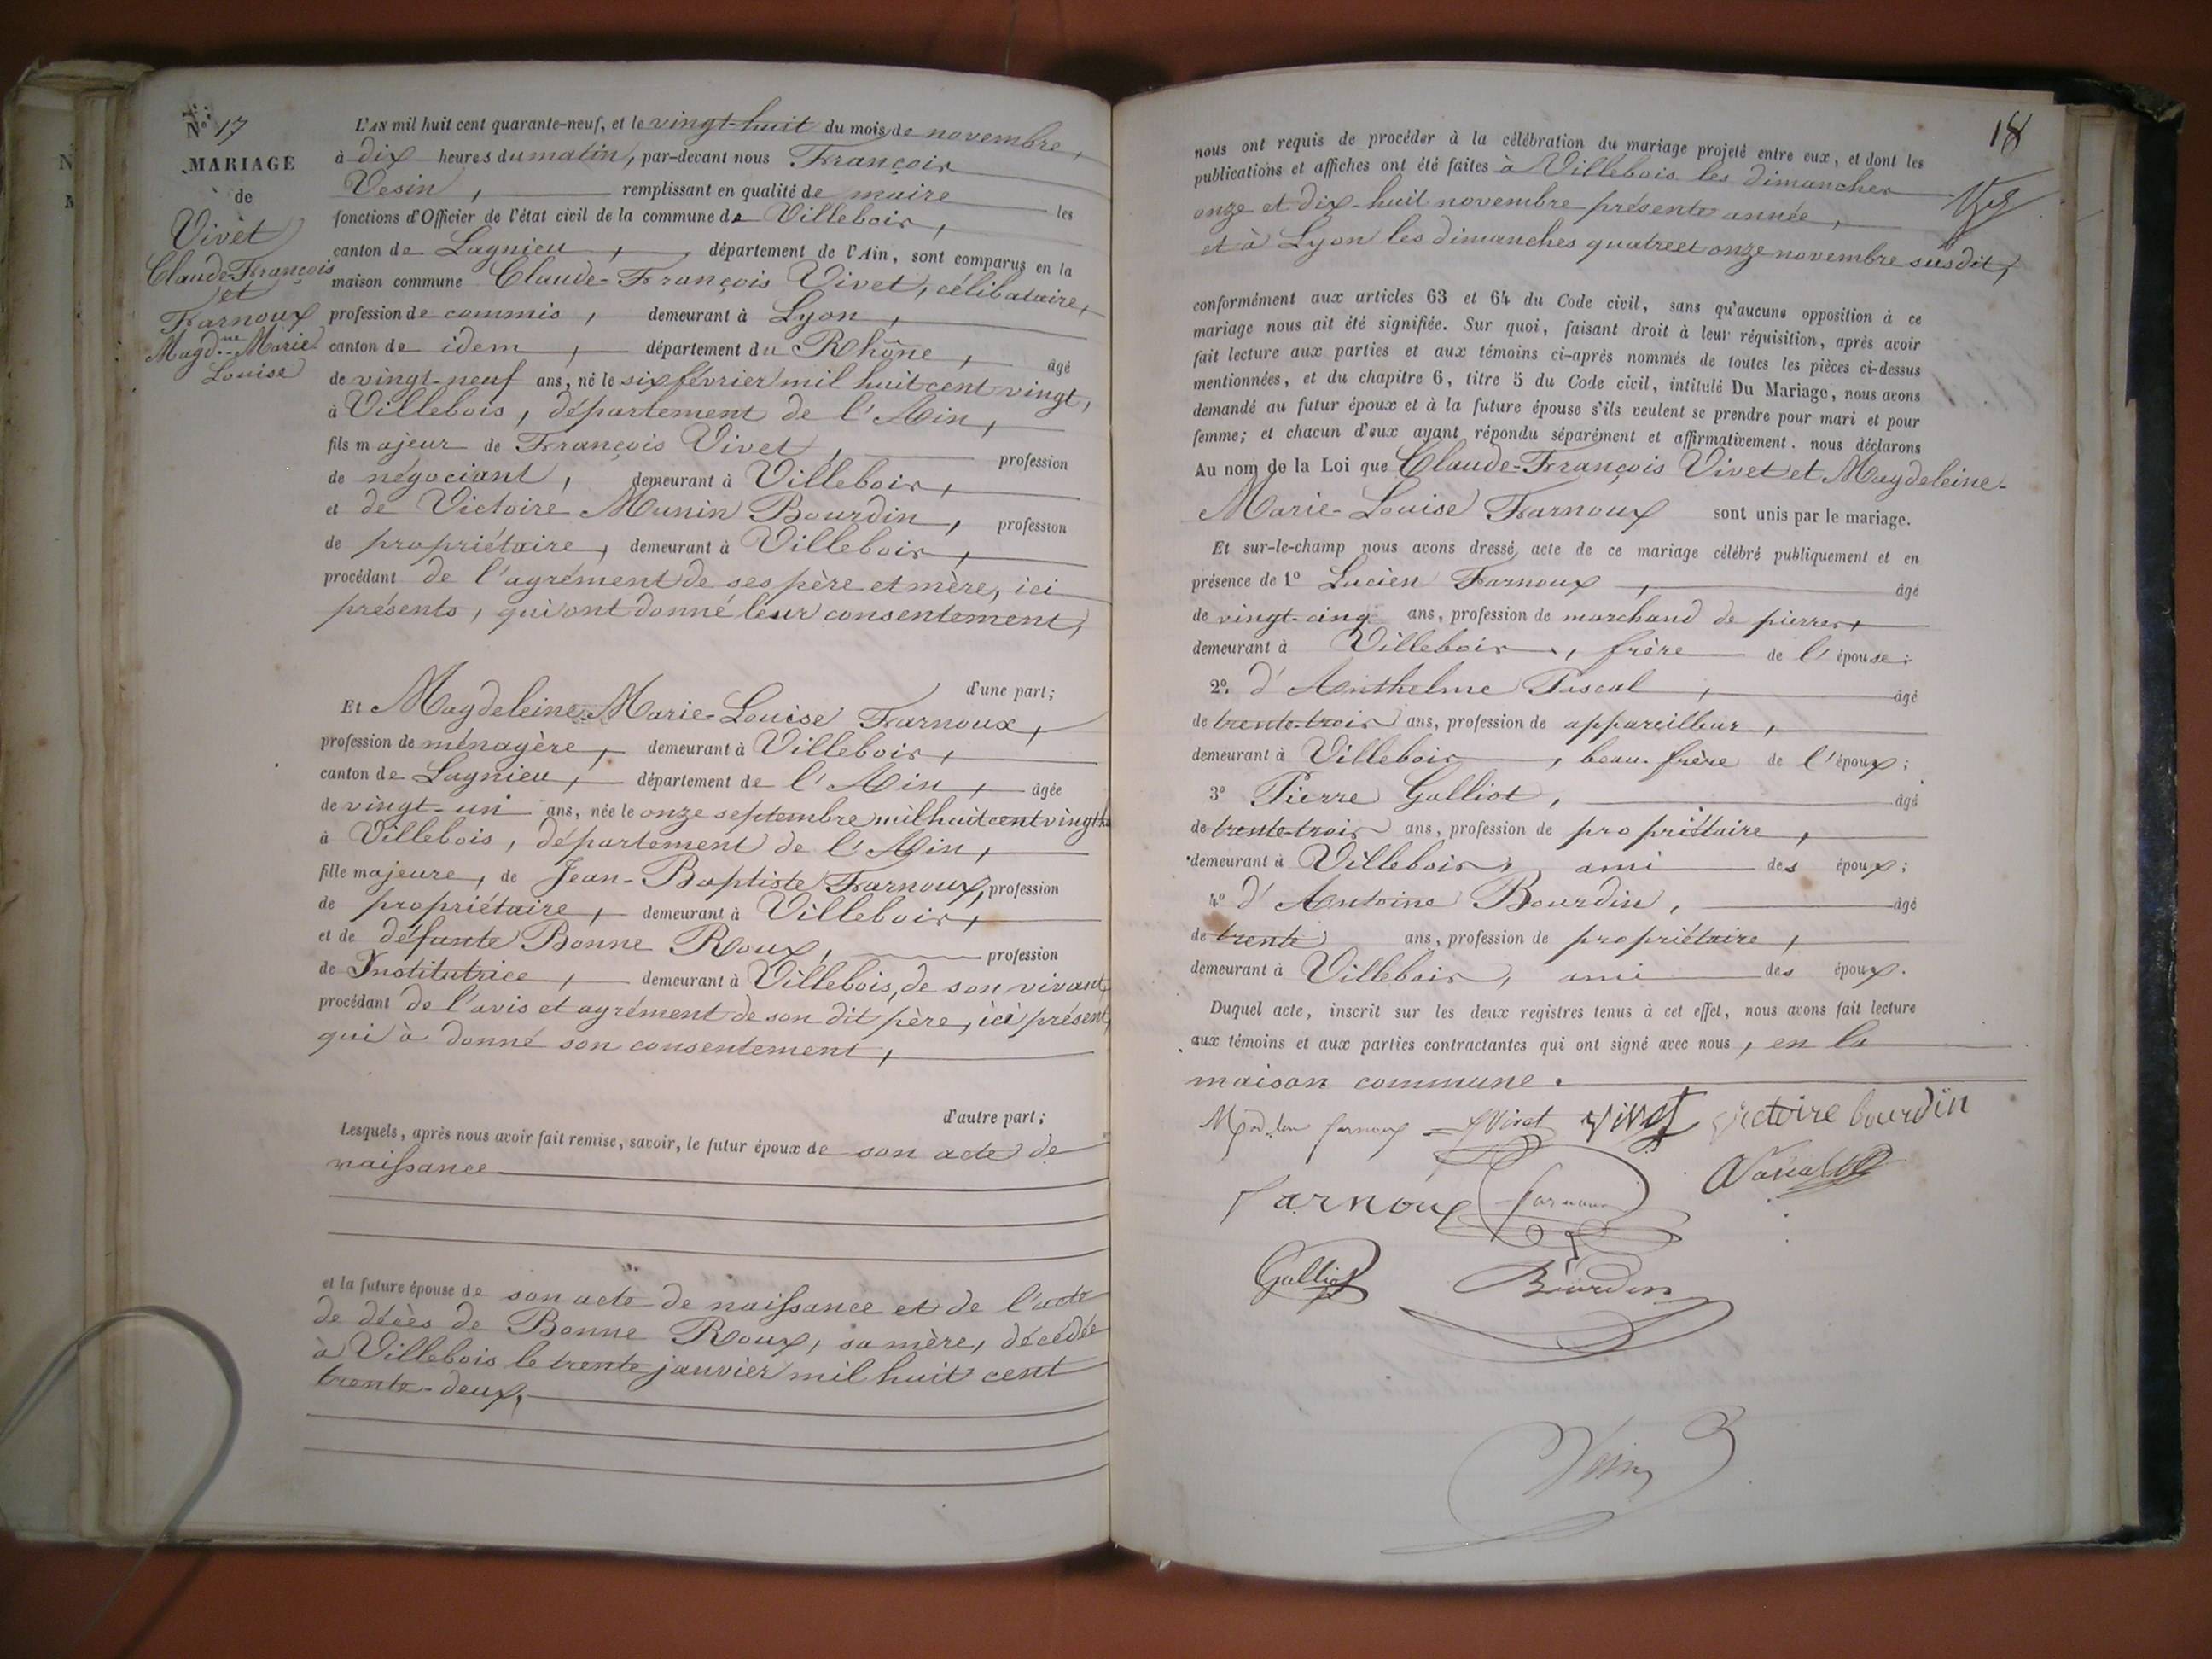 N° 17
MARIAGE
de
Vivet
Claude-François
et
Farnoux
Magd.ne Marie
Louise
L'AN mil huit cent quarante-neuf, et le vingt-huit du mois de novembre,
à dix heures du matin, par-devant nous François
Vesin, remplissant en qualité de maire les
fonctions d'Officier de l'état civil de la commune de Villebois,
canton de Lagnieu, département de l'Ain, sont comparus en la
maison commune Claude-François Vivet, célibataire,
profession de commis, demeurant à Lyon,
canton de idem, département du Rhône, âgé
de vingt-neuf ans, né le six février mil huit cent vingt,
à Villebois, département de l'Ain,
fils majeur de François Vivet, profession
de négociant, demeurant à Villebois,
et de Victoire Munin Bourdin, profession
de propriétaire, demeurant à Villebois,
procédant de l'agrément de ses père et mère, ici
présents, qui ont donné leur consentement,
d'une part;
Et Magdeleine-Marie-Louise Farnoux,
profession de ménagère, demeurant à Villebois,
canton de Lagnieu, département de l'Ain, âgée
de vingt-un ans, née le onze septembre mil huit cent vingt
à Villebois, département de l'Ain,
fille majeure, de Jean-Baptiste Farnoux, profession
de propriétaire, demeurant à Villebois,
et de défunte Bonne Roux, profession
de Institutrice, demeurant à Villebois, de son vivant,
procédant de l'avis et agrément de son dit père, ici présent,
qui à donné son consentement,
d'autre part;
Lesquels, après nous avoir fait remise, savoir, le futur époux de son acte de
naissance
et la future épouse de son acte de naissance et de l'acte
de décès de Bonne Roux, sa mère, décédée
à Villebois le trente janvier mil huit cent
trente-deux,
18
nous ont requis de procéder à la célébration du mariage projeté entre eux, et dont les
publications et affiches ont été faites à Villebois les dimanches
onze et dix-huit novembre présente année,
et à Lyon les dimanches quatre et onze novembre susdit,
conformément aux articles 63 et 64 du Code civil, sans qu'aucune opposition à ce
mariage nous ait été signifiée. Sur quoi, faisant droit à leur réquisition, après avoir
fait lecture aux parties et aux témoins ci-après nommés de toutes les pièces ci-dessus
mentionnées, et du chapitre 6, titre 5 du Code civil, intitulé Du Mariage, nous avons
demandé au futur époux et à la future épouse s'ils veulent se prendre pour mari et pour
femme; et chacun d'eux ayant répondu séparément et affirmativement, nous déclarons
Au nom de la Loi que Claude-François Vivet et Magdeleine-
Marie-Louise Farnoux sont unis par le mariage.
Et sur-le-champ nous avons dressé acte de ce mariage célébré publiquement et en
présence de 1° Lucien Farnoux, âgé
de vingt-cinq ans, profession de marchand de pierres,
demeurant à Villebois, frère de l'épouse;
2° d'Anthelme Pascal, âgé
de trente-trois ans, profession de appareilleur,
demeurant à Villebois, beau-frère de l'époux;
3° Pierre Galliot, âgé
de trente-trois ans, profession de propriétaire,
demeurant à Villebois, ami des époux;
4° d'Antoine Bourdin, âgé
de trente ans, profession de propriétaire,
demeurant à Villebois, ami des époux.
Duquel acte, inscrit sur les deux registres tenus à cet effet, nous avons fait lecture
aux témoins et aux parties contractantes qui ont signé avec nous, en la
maison commune.
farnoux Vivet Vivet victoire bourdin
farnoux farnoux
Galliot Bourdin
Vesin